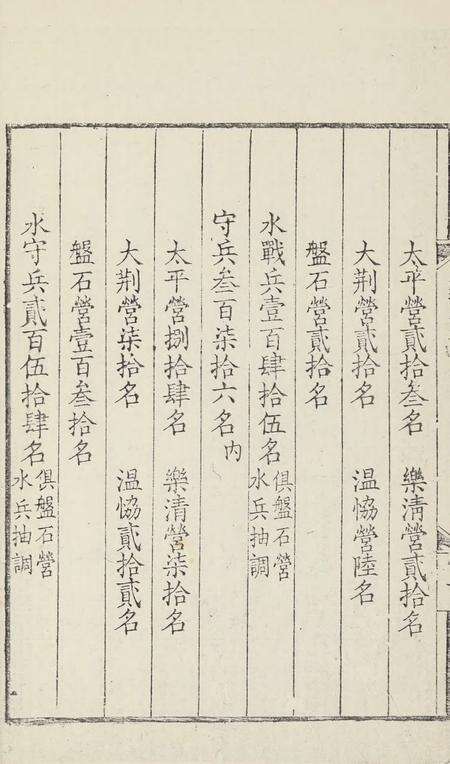 太平營貳拾叁名　樂清營貳拾名
大荆營貳拾名　温恊營陸名
盤石營貳拾名
水戰兵壹百肆拾伍名俱盤石營
水兵抽調
守兵叁百柒拾六名内
太平營捌拾肆名　樂清營柒拾名
大荆營柒拾名　温恊貳拾貳名
盤石營壹百叁拾名
水守兵貳百伍拾肆名俱盤石營
水兵抽調